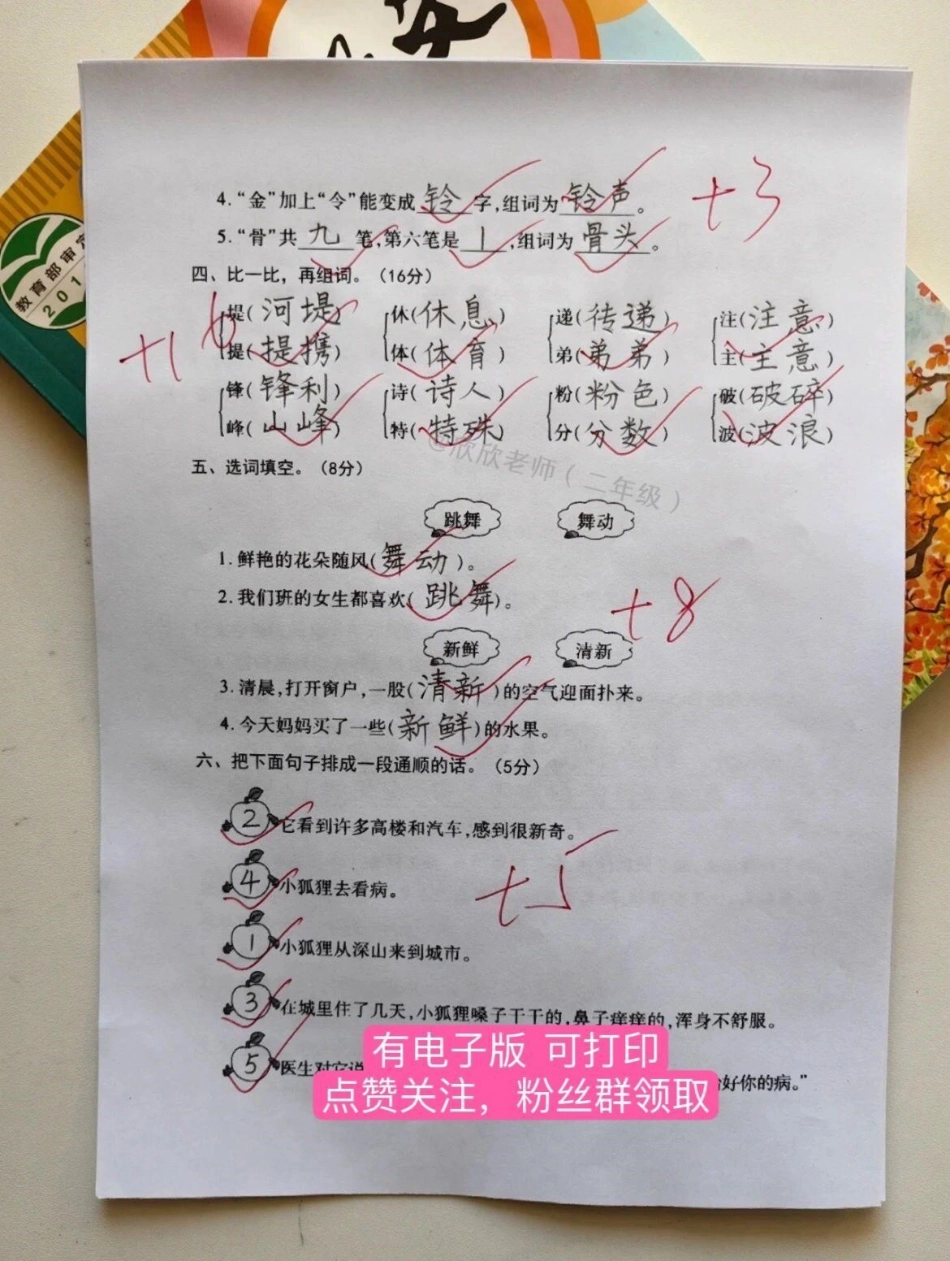 教育部审定
201
4.“金”加上“令”能变成 铃 字,组词为 铃声 。
+3
5.“骨”共 九 笔,第六笔是 丨 ,组词为 骨头 。
四、比一比，再组词。（16分）
+16
堤(河堤) 休(休息) 递(传递) 注(注意)
提(提携) 体(体育) 弟(弟弟) 主(主意)
锋(锋利) 诗(诗人) 粉(粉色) 破(破碎)
峰(山峰) 特(特殊) 分(分数) 波(波浪)
@欣欣老师（二年级）
五、选词填空。（8分）
跳舞 舞动
1.鲜艳的花朵随风(舞动)。
2.我们班的女生都喜欢(跳舞)。
+8
新鲜 清新
3.清晨,打开窗户,一股(清新)的空气迎面扑来。
4.今天妈妈买了一些(新鲜)的水果。
六、把下面句子排成一段通顺的话。（5分）
2 它看到许多高楼和汽车,感到很新奇。
4 小狐狸去看病。
+5
1 小狐狸从深山来到城市。
3 在城里住了几天,小狐狸嗓子干干的,鼻子痒痒的,浑身不舒服。
5 医生对它说 好你的病。”
有电子版 可打印
点赞关注，粉丝群领取